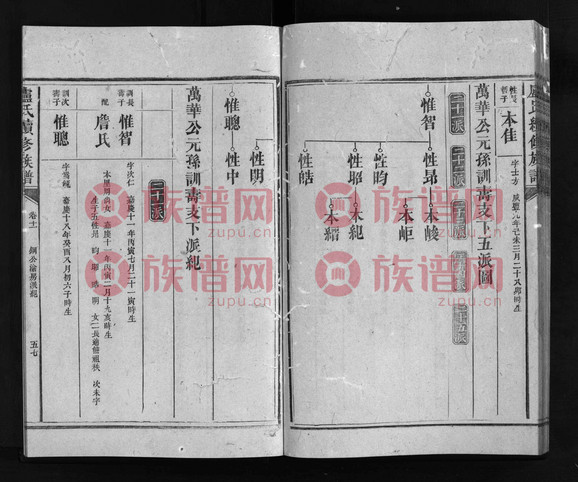 盧氏續修族譜
性長哲子
本佳
字士方
萬華公元孫訓壽支下五派圖
二十一派
二十二派
二十三派
二十四派
二十五派
惟智
性昂
本峻
性昀
本岠
性昭
本紀
性皓
惟聰
性明
性中
萬華公元孫訓壽支下派紀
二十一派
訓長壽子
惟智
字次仁 嘉慶十一年丙寅七月二十一寅時生
配
詹氏
訓次壽子
惟聰
嘉慶十八年癸酉八月初六子時生
盧氏續修族譜
卷十一
五七
族谱网
zupu.cn
族谱网
zupu.cn
族谱网
zupu.cn
族谱网
zupu.cn